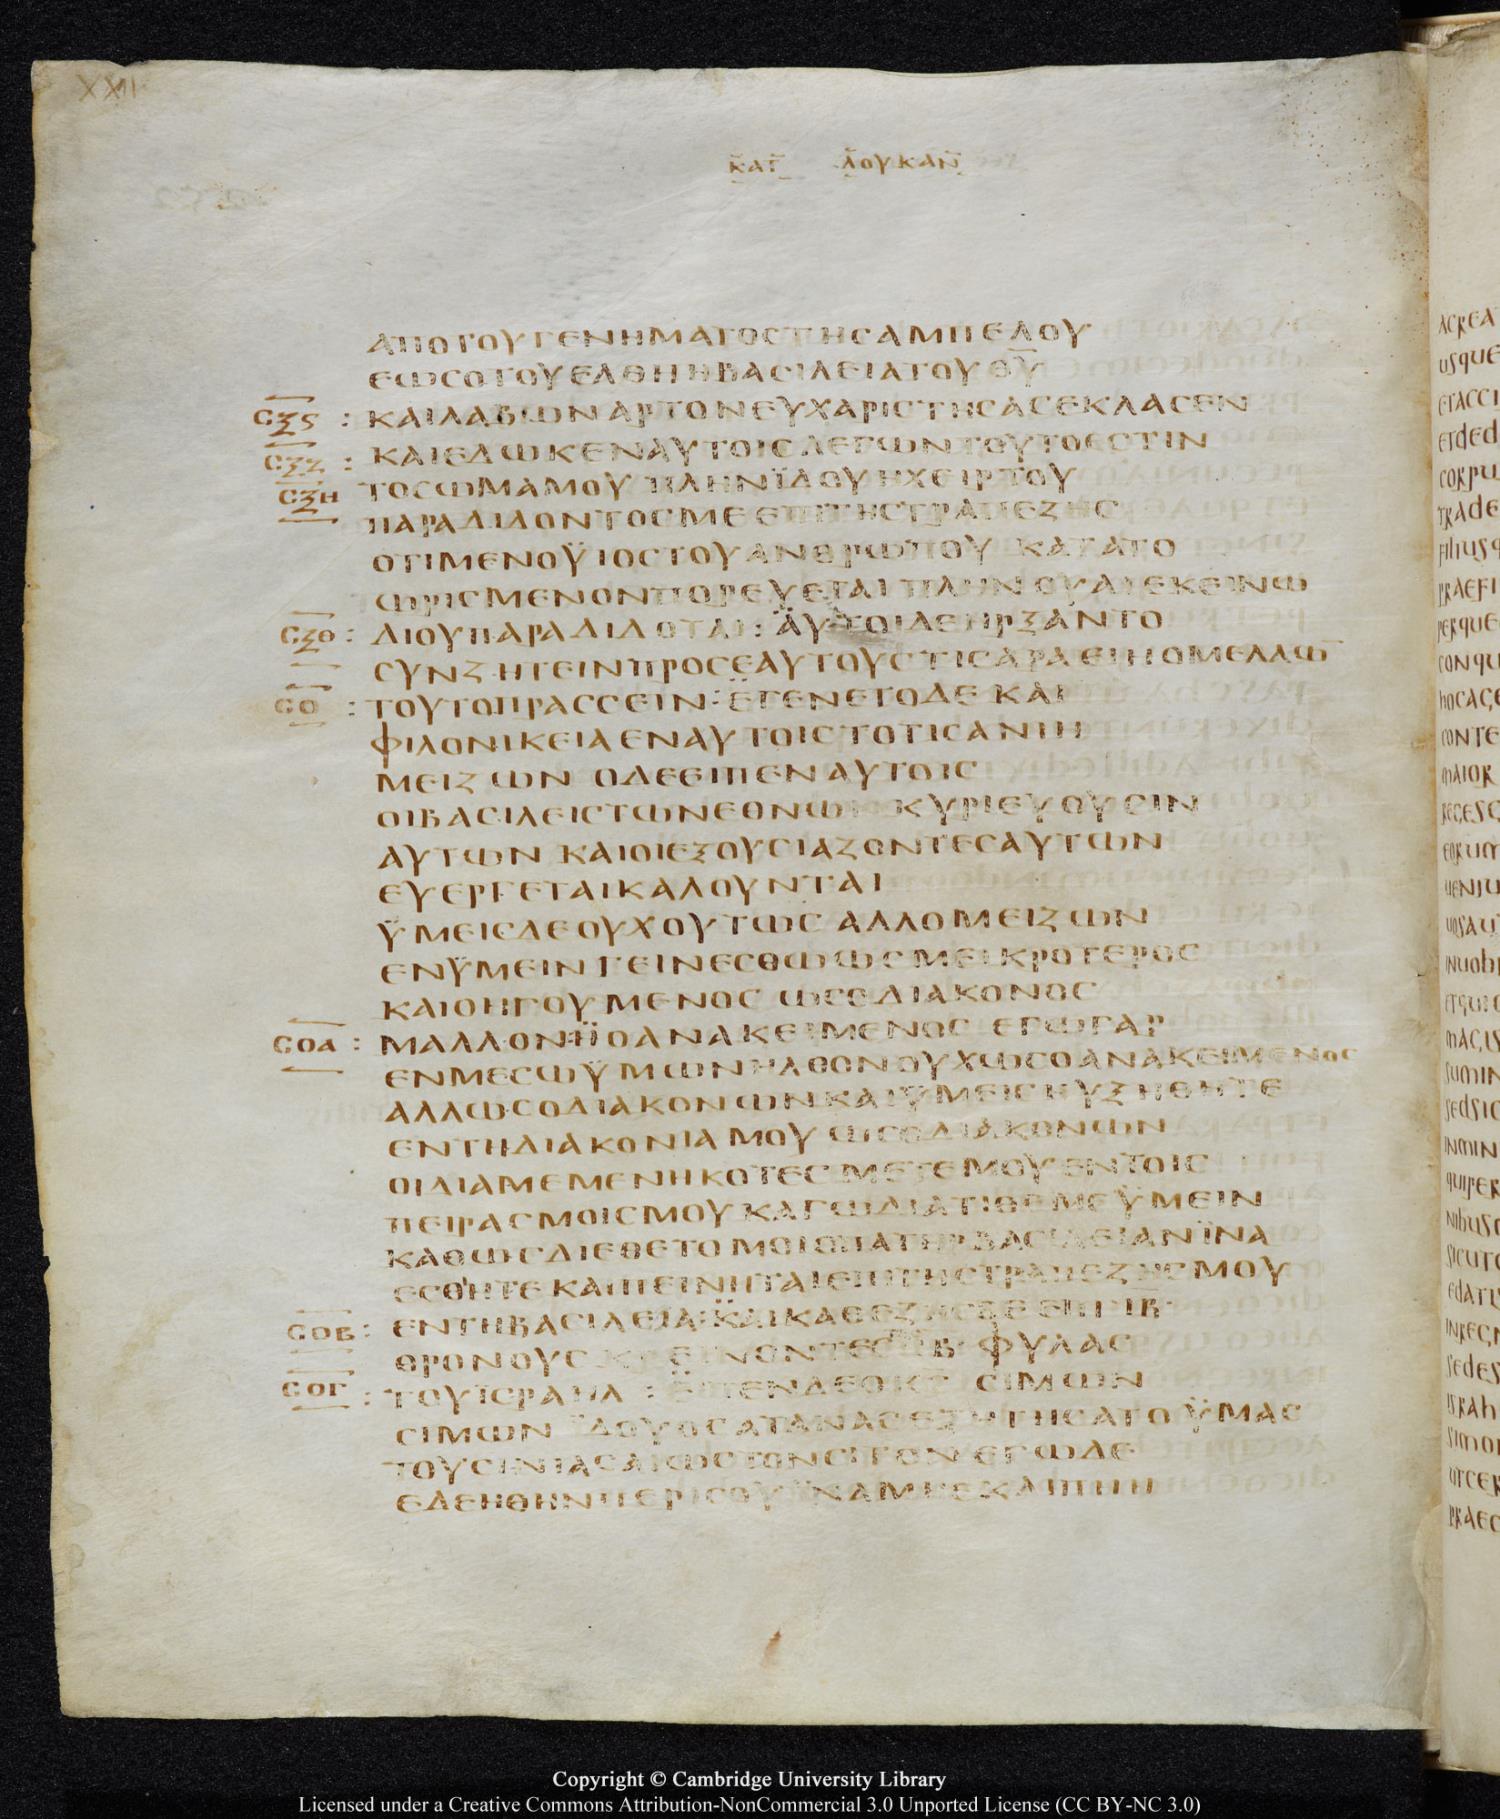 XXII
ΚΑΤ ΛΟΥΚΑΝ
ΑΠΟ ΤΟΥ ΓΕΝΗΜΑΤΟΣ ΤΗΣ ΑΜΠΕΛΟΥ
ΕΩΣ ΟΤΟΥ ΕΛΘΗ Η ΒΑΣΙΛΕΙΑ ΤΟΥ ΘΥ
ϹΞϚ : ΚΑΙ ΛΑΒΩΝ ΑΡΤΟΝ ΕΥΧΑΡΙΣΤΗΣΑΣ ΕΚΛΑΣΕΝ
ϹΞΖ : ΚΑΙ ΕΔΩΚΕΝ ΑΥΤΟΙΣ ΛΕΓΩΝ ΤΟΥΤΟ ΕΣΤΙΝ
ϹΞΗ ΤΟ ΣΩΜΑ ΜΟΥ ΠΛΗΝ ΪΔΟΥ Η ΧΕΙΡ ΤΟΥ
ΠΑΡΑΔΙΔΟΝΤΟΣ ΜΕ ΕΠΙ ΤΗΣ ΤΡΑΠΕΖΗΣ
ΟΤΙ ΜΕΝ Ο ΫΙΟΣ ΤΟΥ ΑΝΘΡΩΠΟΥ ΚΑΤΑ ΤΟ
ΩΡΙΣΜΕΝΟΝ ΠΟΡΕΥΕΤΑΙ ΠΛΗΝ ΟΥΑΙ ΕΚΕΙΝΩ
ϹΞΘ : ΔΙ ΟΥ ΠΑΡΑΔΙΔΟΤΑΙ : ΑΥΤΟΙ ΔΕ ΗΡΞΑΝΤΟ
ΣΥΝΖΗΤΕΙΝ ΠΡΟΣ ΕΑΥΤΟΥΣ ΤΙΣ ΑΡΑ ΕΙΗ Ο ΜΕΛΛΩ̅
ϹΟ : ΤΟΥΤΟ ΠΡΑΣΣΕΙΝ : ΕΓΕΝΕΤΟ ΔΕ ΚΑΙ
ΦΙΛΟΝΙΚΕΙΑ ΕΝ ΑΥΤΟΙΣ ΤΟ ΤΙΣ ΑΝ ΙΗ
ΜΕΙΖΩΝ Ο ΔΕ ΕΙΠΕΝ ΑΥΤΟΙΣ
ΟΙ ΒΑΣΙΛΕΙΣ ΤΩΝ ΕΘΝΩΝ ΚΥΡΙΕΥΟΥΣΙΝ
ΑΥΤΩΝ ΚΑΙ ΟΙ ΕΞΟΥΣΙΑΖΟΝΤΕΣ ΑΥΤΩΝ
ΕΥΕΡΓΕΤΑΙ ΚΑΛΟΥΝΤΑΙ
ΫΜΕΙΣ ΔΕ ΟΥΧ ΟΥΤΩΣ ΑΛΛ Ο ΜΕΙΖΩΝ
ΕΝ ΫΜΕΙΝ ΓΕΙΝΕΣΘΩ ΩΣ ΜΕΙΚΡΟΤΕΡΟΣ
ΚΑΙ Ο ΗΓΟΥΜΕΝΟΣ ΩΣ Ο ΔΙΑΚΟΝΟΣ
ϹΟΑ : ΜΑΛΛΟΝ Η Ο ΑΝΑΚΕΙΜΕΝΟΣ ΕΓΩ ΓΑΡ
ΕΝ ΜΕΣΩ ΫΜΩΝ ΗΛΘΟΝ ΟΥΧ ΩΣ Ο ΑΝΑΚΕΙΜΕΝΟΣ
ΑΛΛ ΩΣ Ο ΔΙΑΚΟΝΩΝ ΚΑΙ ΫΜΕΙΣ ΗΥΞΗΘΗΤΕ
ΕΝ ΤΗ ΔΙΑΚΟΝΙΑ ΜΟΥ ΩΣ Ο ΔΙΑΚΟΝΩΝ
ΟΙ ΔΙΑΜΕΜΕΝΗΚΟΤΕΣ ΜΕΤ ΕΜΟΥ ΕΝ ΤΟΙΣ
ΠΕΙΡΑΣΜΟΙΣ ΜΟΥ ΚΑΓΩ ΔΙΑΤΙΘΕΜΕ ΫΜΕΙΝ
ΚΑΘΩΣ ΔΙΕΘΕΤΟ ΜΟΙ Ο ΠΑΤΗΡ ΒΑΣΙΛΕΙΑΝ ΪΝΑ
ΕΣΘΗΤΕ ΚΑΙ ΠΕΙΝΗΤΑΙ ΕΠΙ ΤΗΣ ΤΡΑΠΕΖΗΣ ΜΟΥ
ϹΟΒ : ΕΝ ΤΗ ΒΑΣΙΛΕΙΑ : ΚΑΙ ΚΑΘΕΖΗΣΘΕ ΕΠΙ ΙΒ
ΘΡΟΝΟΥΣ ΚΡΕΙΝΟΝΤΕΣ ΙΒ ΦΥΛΑΣ
ϹΟΓ : ΤΟΥ ΪΣΡΑΗΛ : ΕΙΠΕΝ ΔΕ Ο ΚΣ ΣΙΜΩΝ
ΣΙΜΩΝ ΪΔΟΥ Ο ΣΑΤΑΝΑΣ ΕΞΗΤΗΣΑΤΟ ΫΜΑΣ
ΤΟΥ ΣΙΝΙΑΣΑΙ ΩΣ ΤΟΝ ΣΙΤΟΝ ΕΓΩ ΔΕ
ΕΔΕΗΘΗΝ ΠΕΡΙ ΣΟΥ ΪΝΑ ΜΗ ΕΚΛΙΠΗ Η
Copyright © Cambridge University Library
Licensed under a Creative Commons Attribution-NonCommercial 3.0 Unported License (CC BY-NC 3.0)